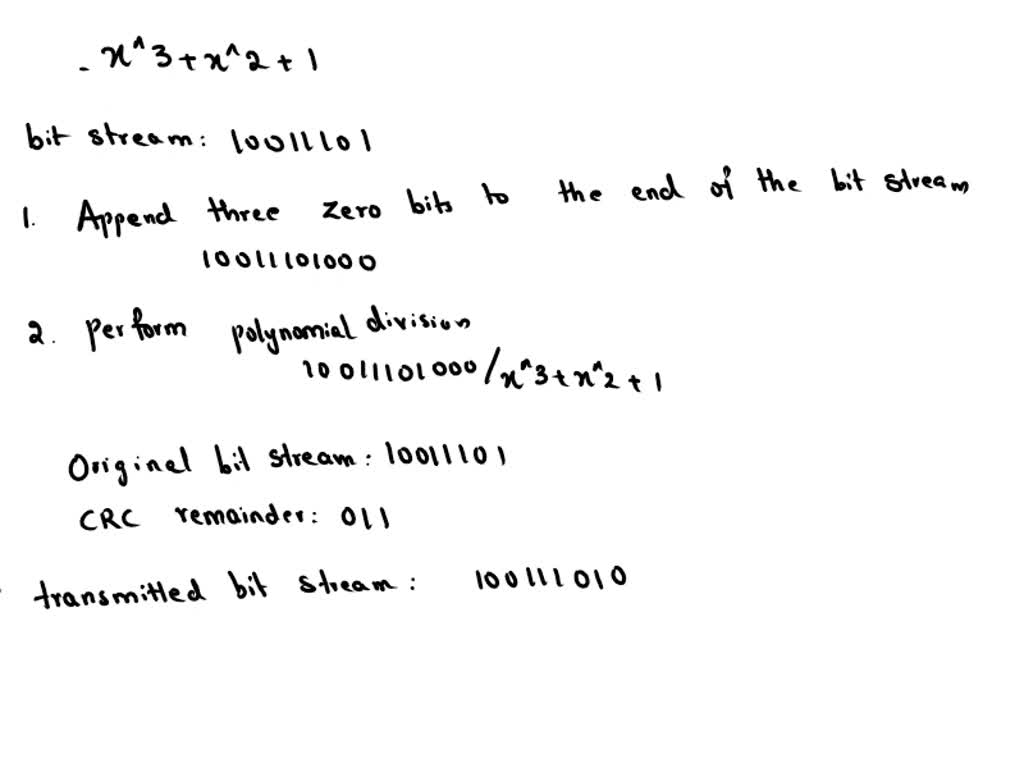 - x^3+x^2+1
bit stream: 10011101
1. Append three zero bits to the end of the bit stream
10011101000
2. Perform polynomial division
10011101000/x^3+x^2+1
Original bit stream: 10011101
CRC remainder: 011
transmitted bit stream: 100111010